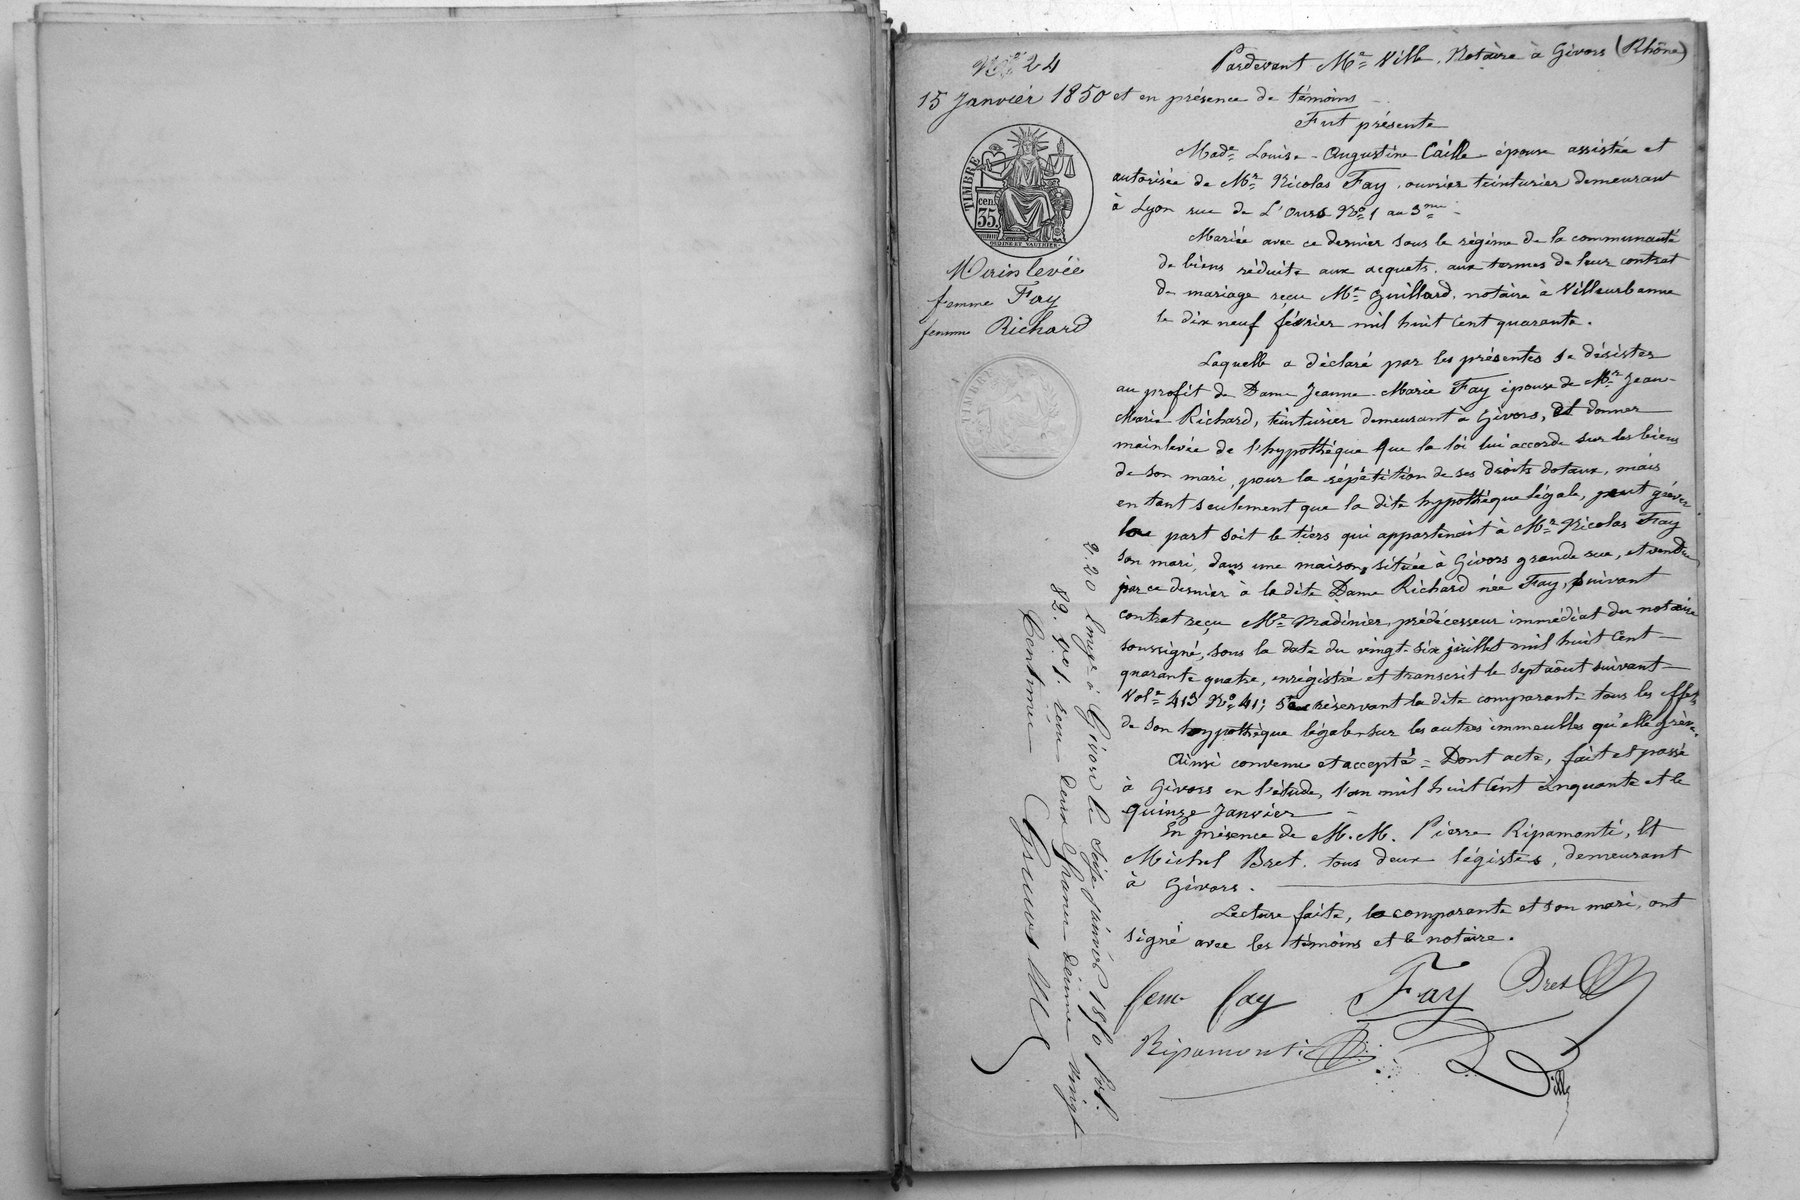 No 24
15 Janvier 1850
TIMBRE
cen.
35.
OUDINÉ ET VAUTHIER
Mainlevée
femme Fay
femme Richard
TIMBRE
Pardevant Me Ville, Notaire à Givors (Rhône)
et en présence de témoins
Fut présente
Made Louise-Augustine Caille épouse assistée et
autorisée de Mr Nicolas Fay, ouvrier teinturier demeurant
à Lyon rue de L'Ours No 1 au 3me
Mariée avec ce dernier sous le régime de la communauté
de biens réduite aux acquets, aux termes de leur contrat
de mariage reçu Me Guillard, notaire à Villeurbanne
le dix neuf février mil huit cent quarante.
Laquelle a déclaré par les présentes se désister
au profit de Dame Jeanne-Marie Fay épouse de Mr Jean-
Marie Richard, teinturier demeurant à Givors, et donner
mainlevée de l'hypothéque que la loi lui accorde sur les biens
de son mari, pour la répétition de ses droits dotaux, mais
en tant seulement que la dite hypothèque légale, peut gréver
la part soit le tiers qui appartenait à Mr Nicolas Fay
son mari, dans une maison, située à Givors grande rue, et vendue
par ce dernier à la dite Dame Richard née Fay, suivant
contrat reçu Me Madinier, prédécesseur immédiat du notaire
soussigné, sous la date du vingt-six juillet mil huit cent
quarante quatre, enrégistré et transcrit le sept août suivant
Vole 413 No 41; se réservant la dite comparante tous les effets
de son hypothèque légale sur les autres immeubles qu'elle grève.
Ainsi convenu et accepté = Dont acte, fait et passé
à Givors en l'étude, l'an mil huit cent cinquante et le
quinze Janvier
En présence de M.M. Pierre Ripamonti, Et
Michel Bret, tous deux légistes, demeurant
à Givors.
Lecture faite, la comparante et son mari, ont
signé avec les témoins et le notaire.
fem fay Fay Bret
Ripamonti Ville
2.20 Enregé à Givors le seize janvier 1850 fol.
82. Vo 1. reçu deux francs décime vingt
Centimes